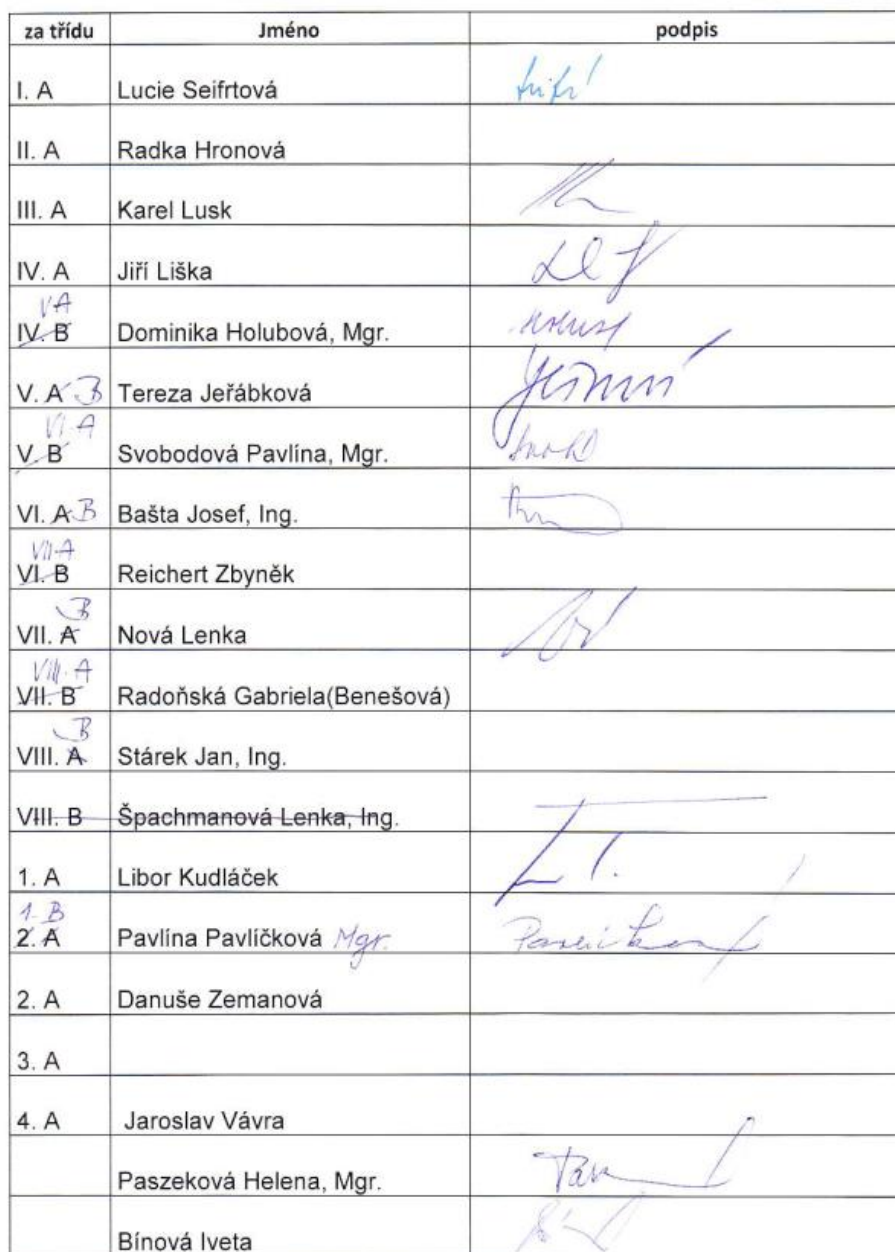 za třídu Jméno podpis
I. A Lucie Seifrtová
II. A Radka Hronová
III. A Karel Lusk
IV. A Jiří Liška
V A
IV. B Dominika Holubová, Mgr.
V. A B Tereza Jeřábková
VI. A
V. B Svobodová Pavlína, Mgr.
VI. A B Bašta Josef, Ing.
VII. A
VI. B Reichert Zbyněk
B
VII. A Nová Lenka
VIII. A
VII. B Radoňská Gabriela(Benešová)
B
VIII. A Stárek Jan, Ing.
VIII. B Špachmanová Lenka, Ing.
1. A Libor Kudláček
1. B
2. A Pavlína Pavlíčková Mgr.
2. A Danuše Zemanová
3. A
4. A Jaroslav Vávra
Paszeková Helena, Mgr.
Bínová Iveta